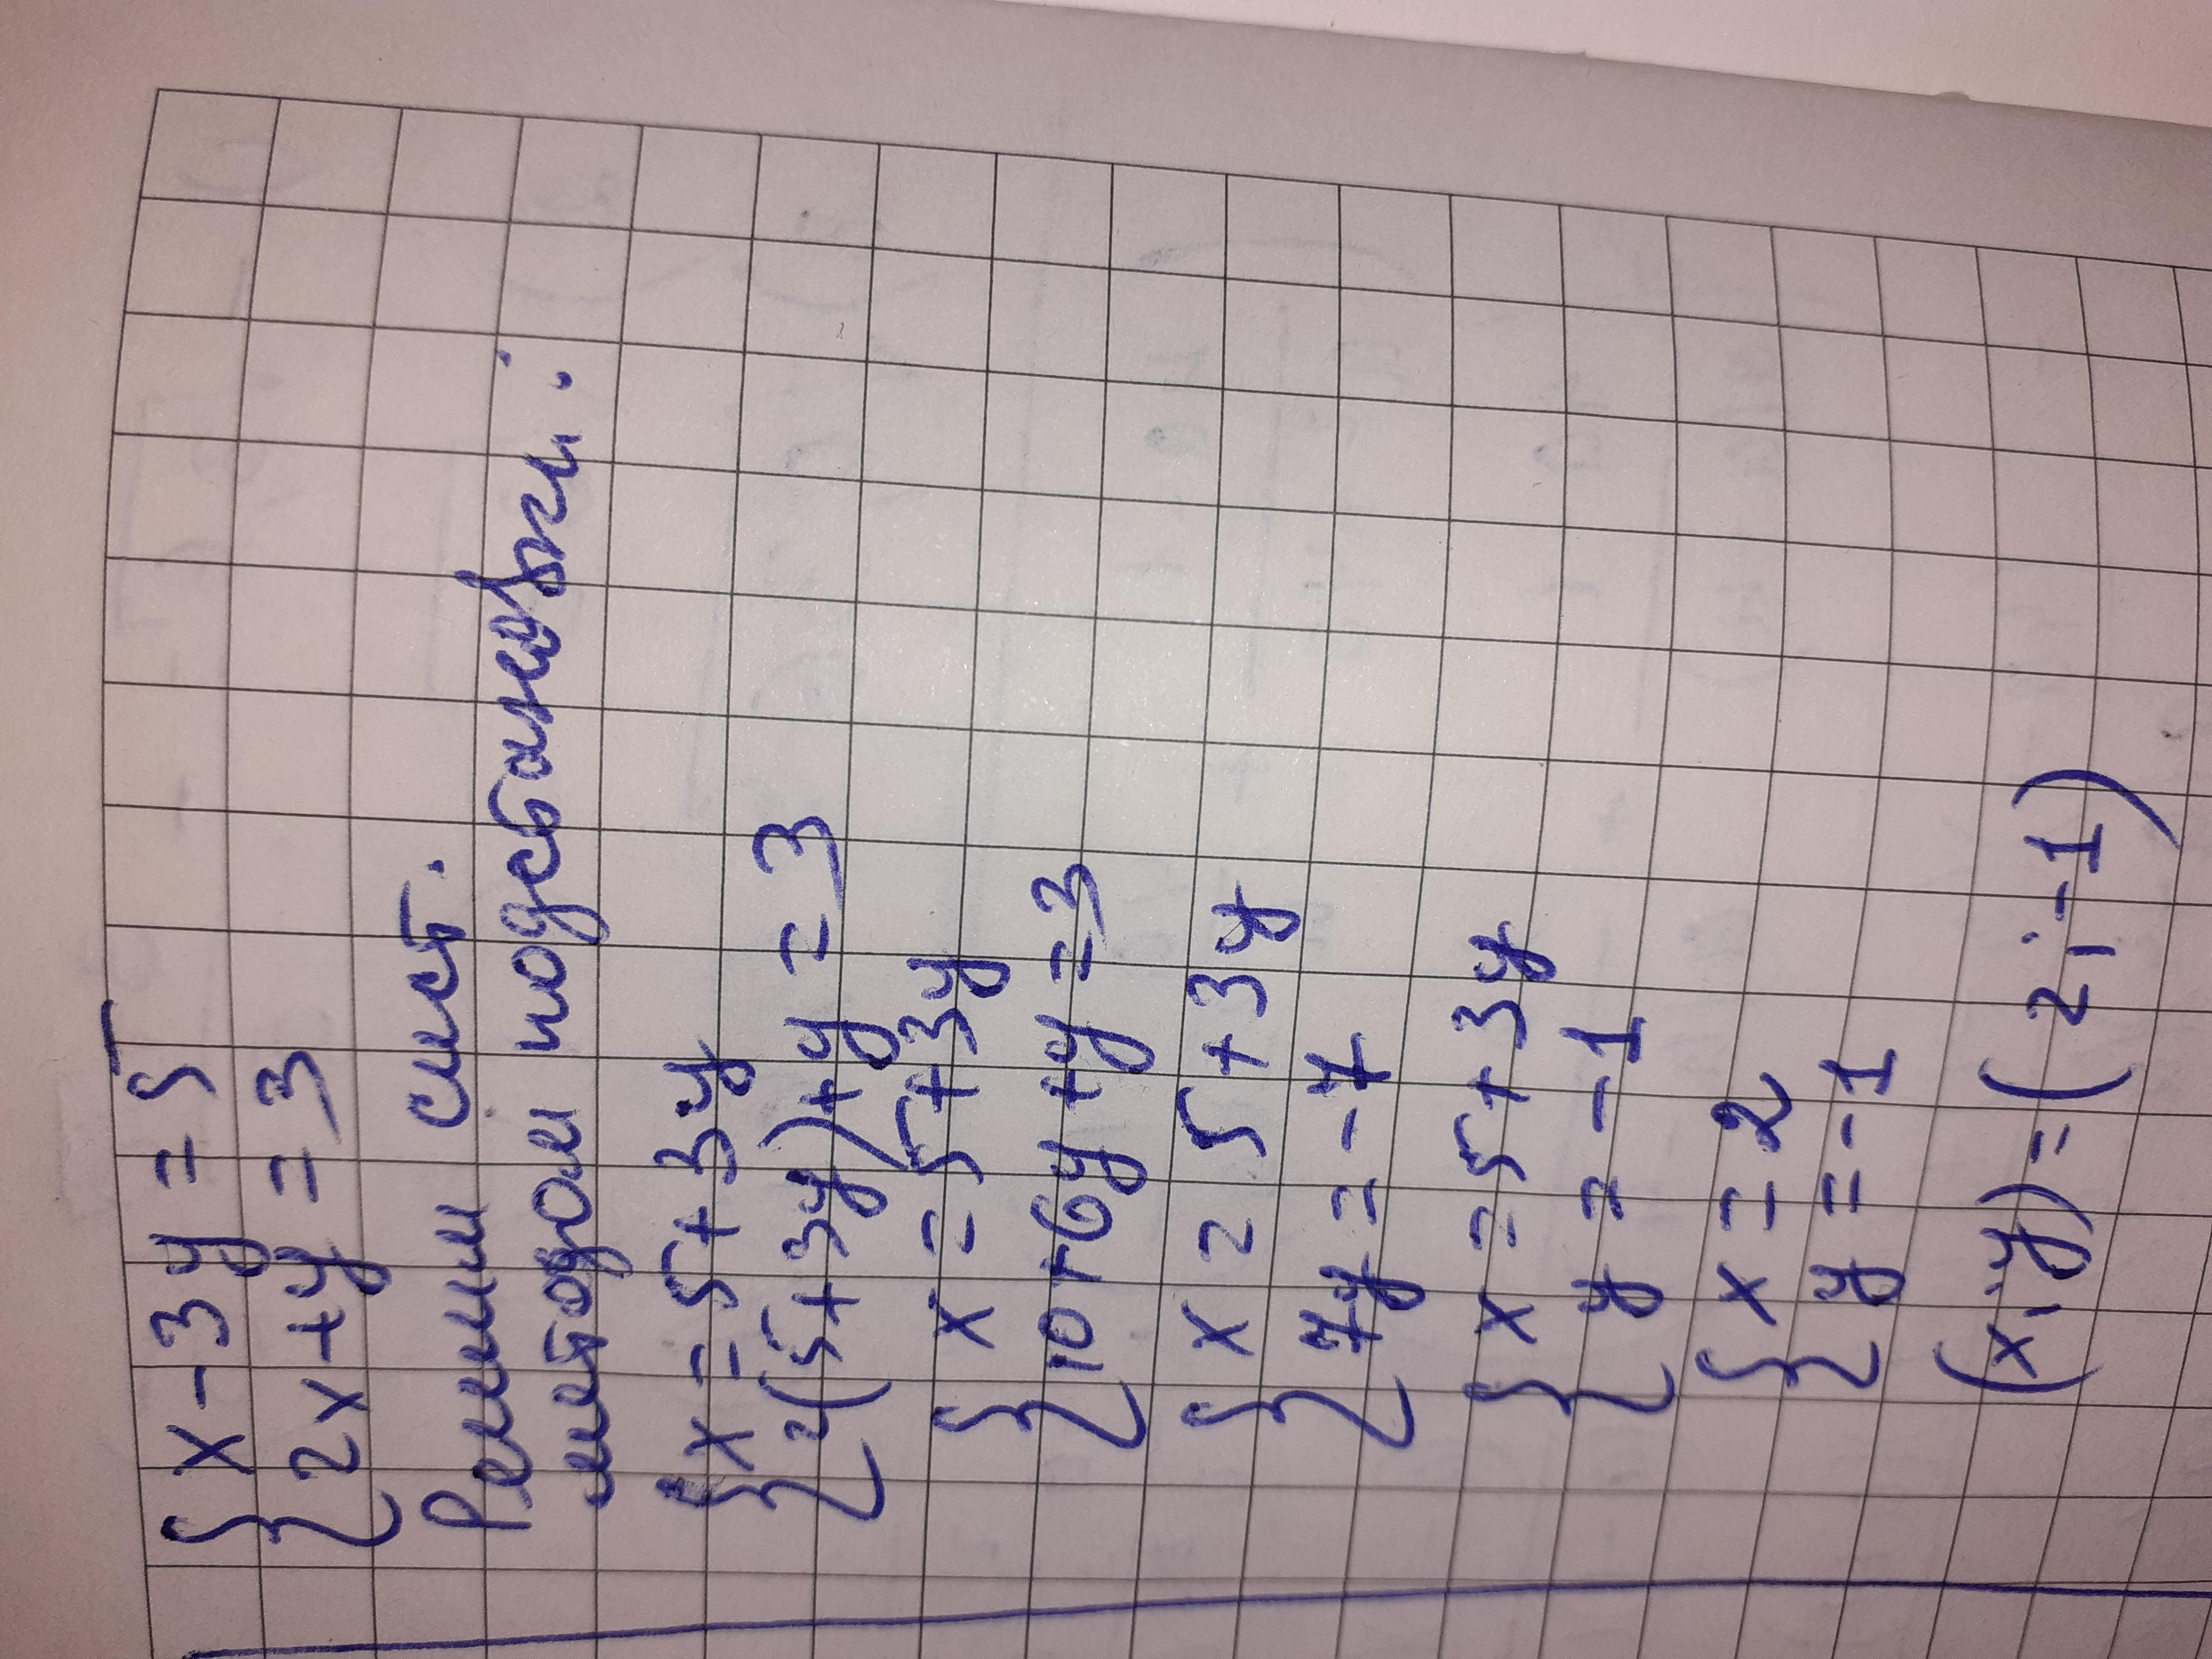 { x - 3y = 5
2x + y = 3
Решим сист.
методом подстановки:
{ x = 5 + 3y
2(5+3y)+y = 3
{ x = 5+3y
10+6y+y=3
{ x = 5+3y
7y = -7
{ x = 5+3y
y = -1
{ x = 2
y = -1
(x,y)=(2;-1)